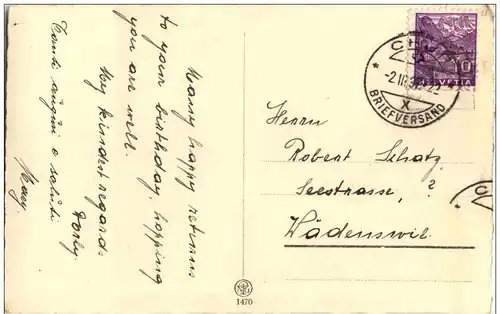 Many happy returns
to your birthday, hopping
you are well.
My kindest regards
Dorly
Tanti auguri e saluti
Mary
10
HELVETIA
BRIEFVERSAND
X
Herrn
Robert Schatz,
Seestrasse, ?
Wädenswil.
1470